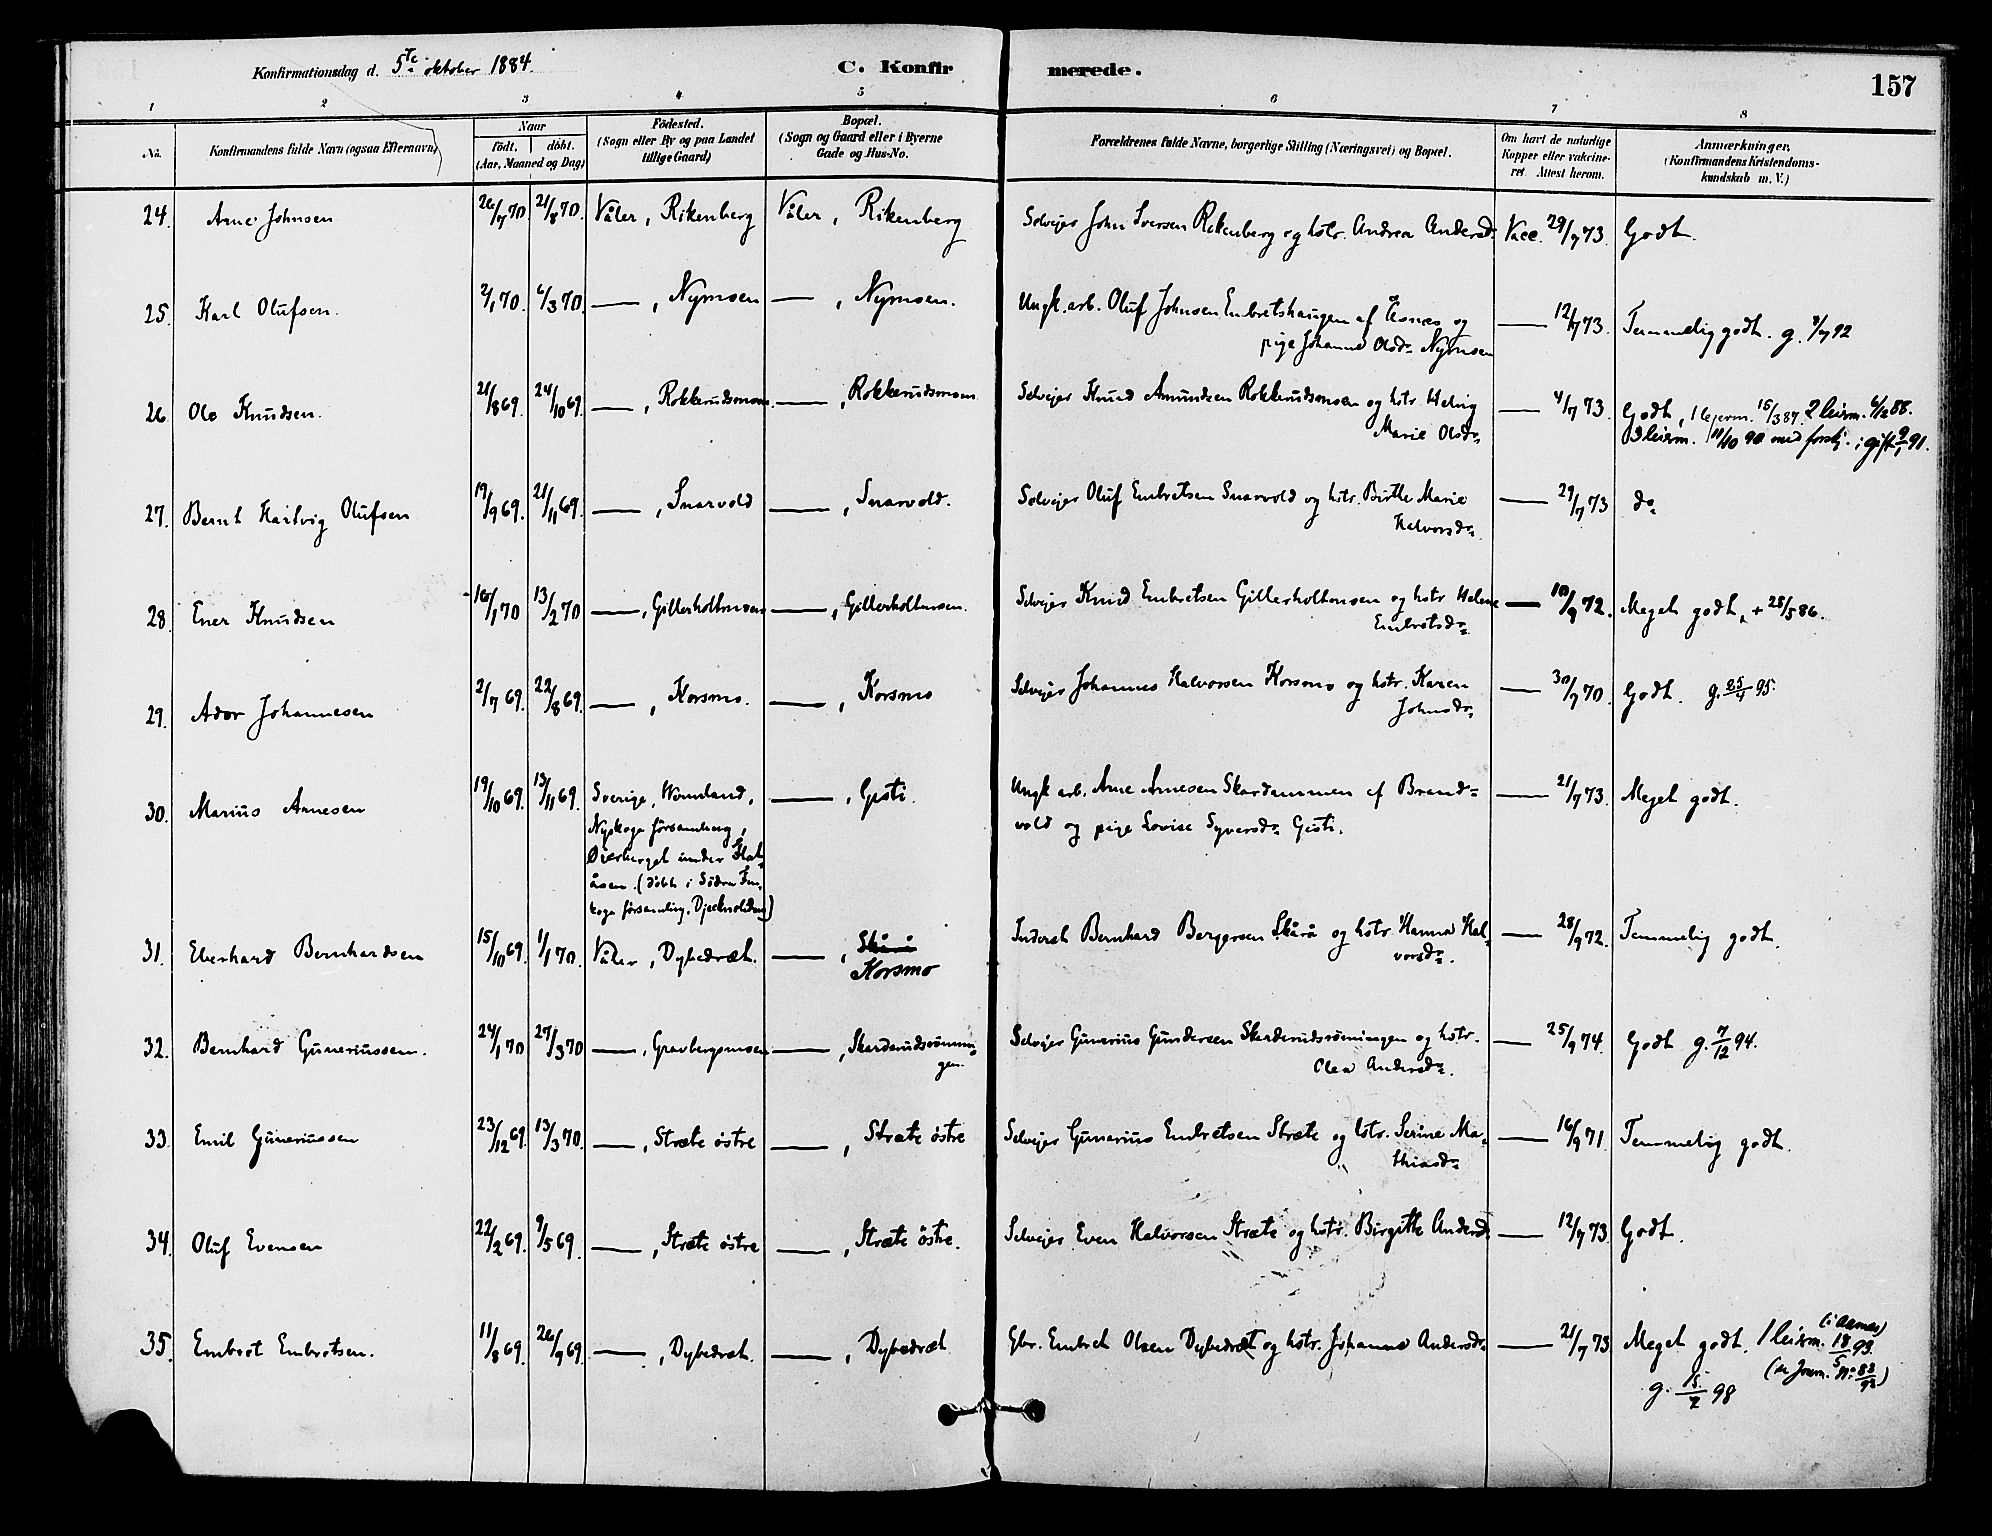 Konfirmationsdag d. 5te oktober 1884. C. Konfirmerede. 157
1 2 3 4 5 6 7 8
No. Konfirmandens fulde Navn (ogsaa Efternavn) Naar födt. döbt. (Aar, Maaned og Dag) Födested. (Sogn eller By og paa Landet tillige Gaard) Bopæl. (Sogn og Gaard eller i Byerne Gade og Hus-No. Forældrenes fulde Navne, borgerlige Stilling (Næringsvei) og Bopæl. Om havt de naturlige Kopper eller vakcineret. Attest herom. Anmærkninger. (Konfirmandens Kristendomskundskab m. V.)
24. Arne Johnsen 26/7 70 21/8 70. Våler, Rikenberg Våler, Rikenberg Selvejer John Iversen Rikenberg og hstr. Andrea Andersd. Vacc. 29/7 73. Godt.
25. Karl Olufsen. 2/1 70. 6/3 70. —, Nymoen —, Nymoen. Ungk. arb. Oluf Johnsen Embretshaugen af Åsnes og
pige Johanne Olsd. Nymoen — 12/7 73. Temmelig godt. g. 8/7 92
26. Ole Knudsen. 21/8 69. 24/10 69. —, Rokkerudsmoen. —, Rokkerudsmoen Selvejer Knud Amundsen Rokkerudsmoen og hstr. Helvig
Marie Olsd. — 4/7 73. Godt, 1 lejerm. 15/3 87. 2 leierm. 6/2 88.
3 leierm. 11/10 90 med forskj. ; gift 9/1 91.
27. Bernt Hartvig Olufsen 19/9 69. 21/11 69. —, Snarvold —, Snarvold. Selvejer Oluf Embretsen Snarvold og hstr. Birthe Marie
Halvorsd. — 29/7 73 do
28. Ener Knudsen 10/1 70 13/2 70 —, Gillerholtmoen —, Gillerholtmoen. Selvejer Knud Embretsen Gillerholtmoen og hstr. Helene
Embretsd. — 10/9 72. Meget godt, + 28/5 86.
29. Ador Johannesen 2/7 69. 22/8 69. —, Korsmo. —, Korsmo Selvejer Johannes Halvorsen Korsmo og hstr. Karen
Johnsd. — 30/7 70. Godt. g. 25/4 95.
30. Marius Arnesen 19/10 69. 13/11 69. Sverige, Wermland, —, Gjesti. Ungk arb. Arne Arnesen Skardammen af Brand-
vold og pige Lovise Syversd. Gjesti. — 21/7 73. Meget godt.
Nyskoga församling,
under
åsen. (döbt i Södra Fin-
skoga församling.
31. Eberhard Bernhardsen 15/10 69. 1/1 70. Våler, Dybedræt. —, Skårå
Korsmo Inderst Bernhard Bergersen Skårå og hstr. Hanna Hal-
vorsd. — 28/9 72. Temmelig godt.
32. Bernhard Guneriussen. 24/1 70 27/3 70 —, Gravbergsmoen —, Skarderudsrønnin-
gen. Selvejer Gunerius Gundersen Skarderudsrønningen og hstr.
Olea Andersd. — 25/9 74. Godt g. 7/12 94.
33. Emil Guneriussen 23/12 69. 13/3 70. —, Stræte östre —, Stræte östre Selvejer Gunerius Embretsen Stræte og hstr. Serine Ma-
thiasd. — 16/9 71 Temmelig godt.
34. Oluf Evensen 22/2 69. 9/5 69. —, Stræte östre —, Stræte östre. Selvejer Even Halvorsen Stræte og hstr. Birgitte Andersd. — 12/7 73. Godt.
35. Embret Embretsen. 11/8 69. 26/9 69. —, Dybedræt. —, Dybedræt Gbr. Embret Olsen Dybedræt og hstr. Johanne Andersd. — 21/7 73 Meget godt. 1 leierm. 18/5 93. (i Aasnes)
g. 15/2 98